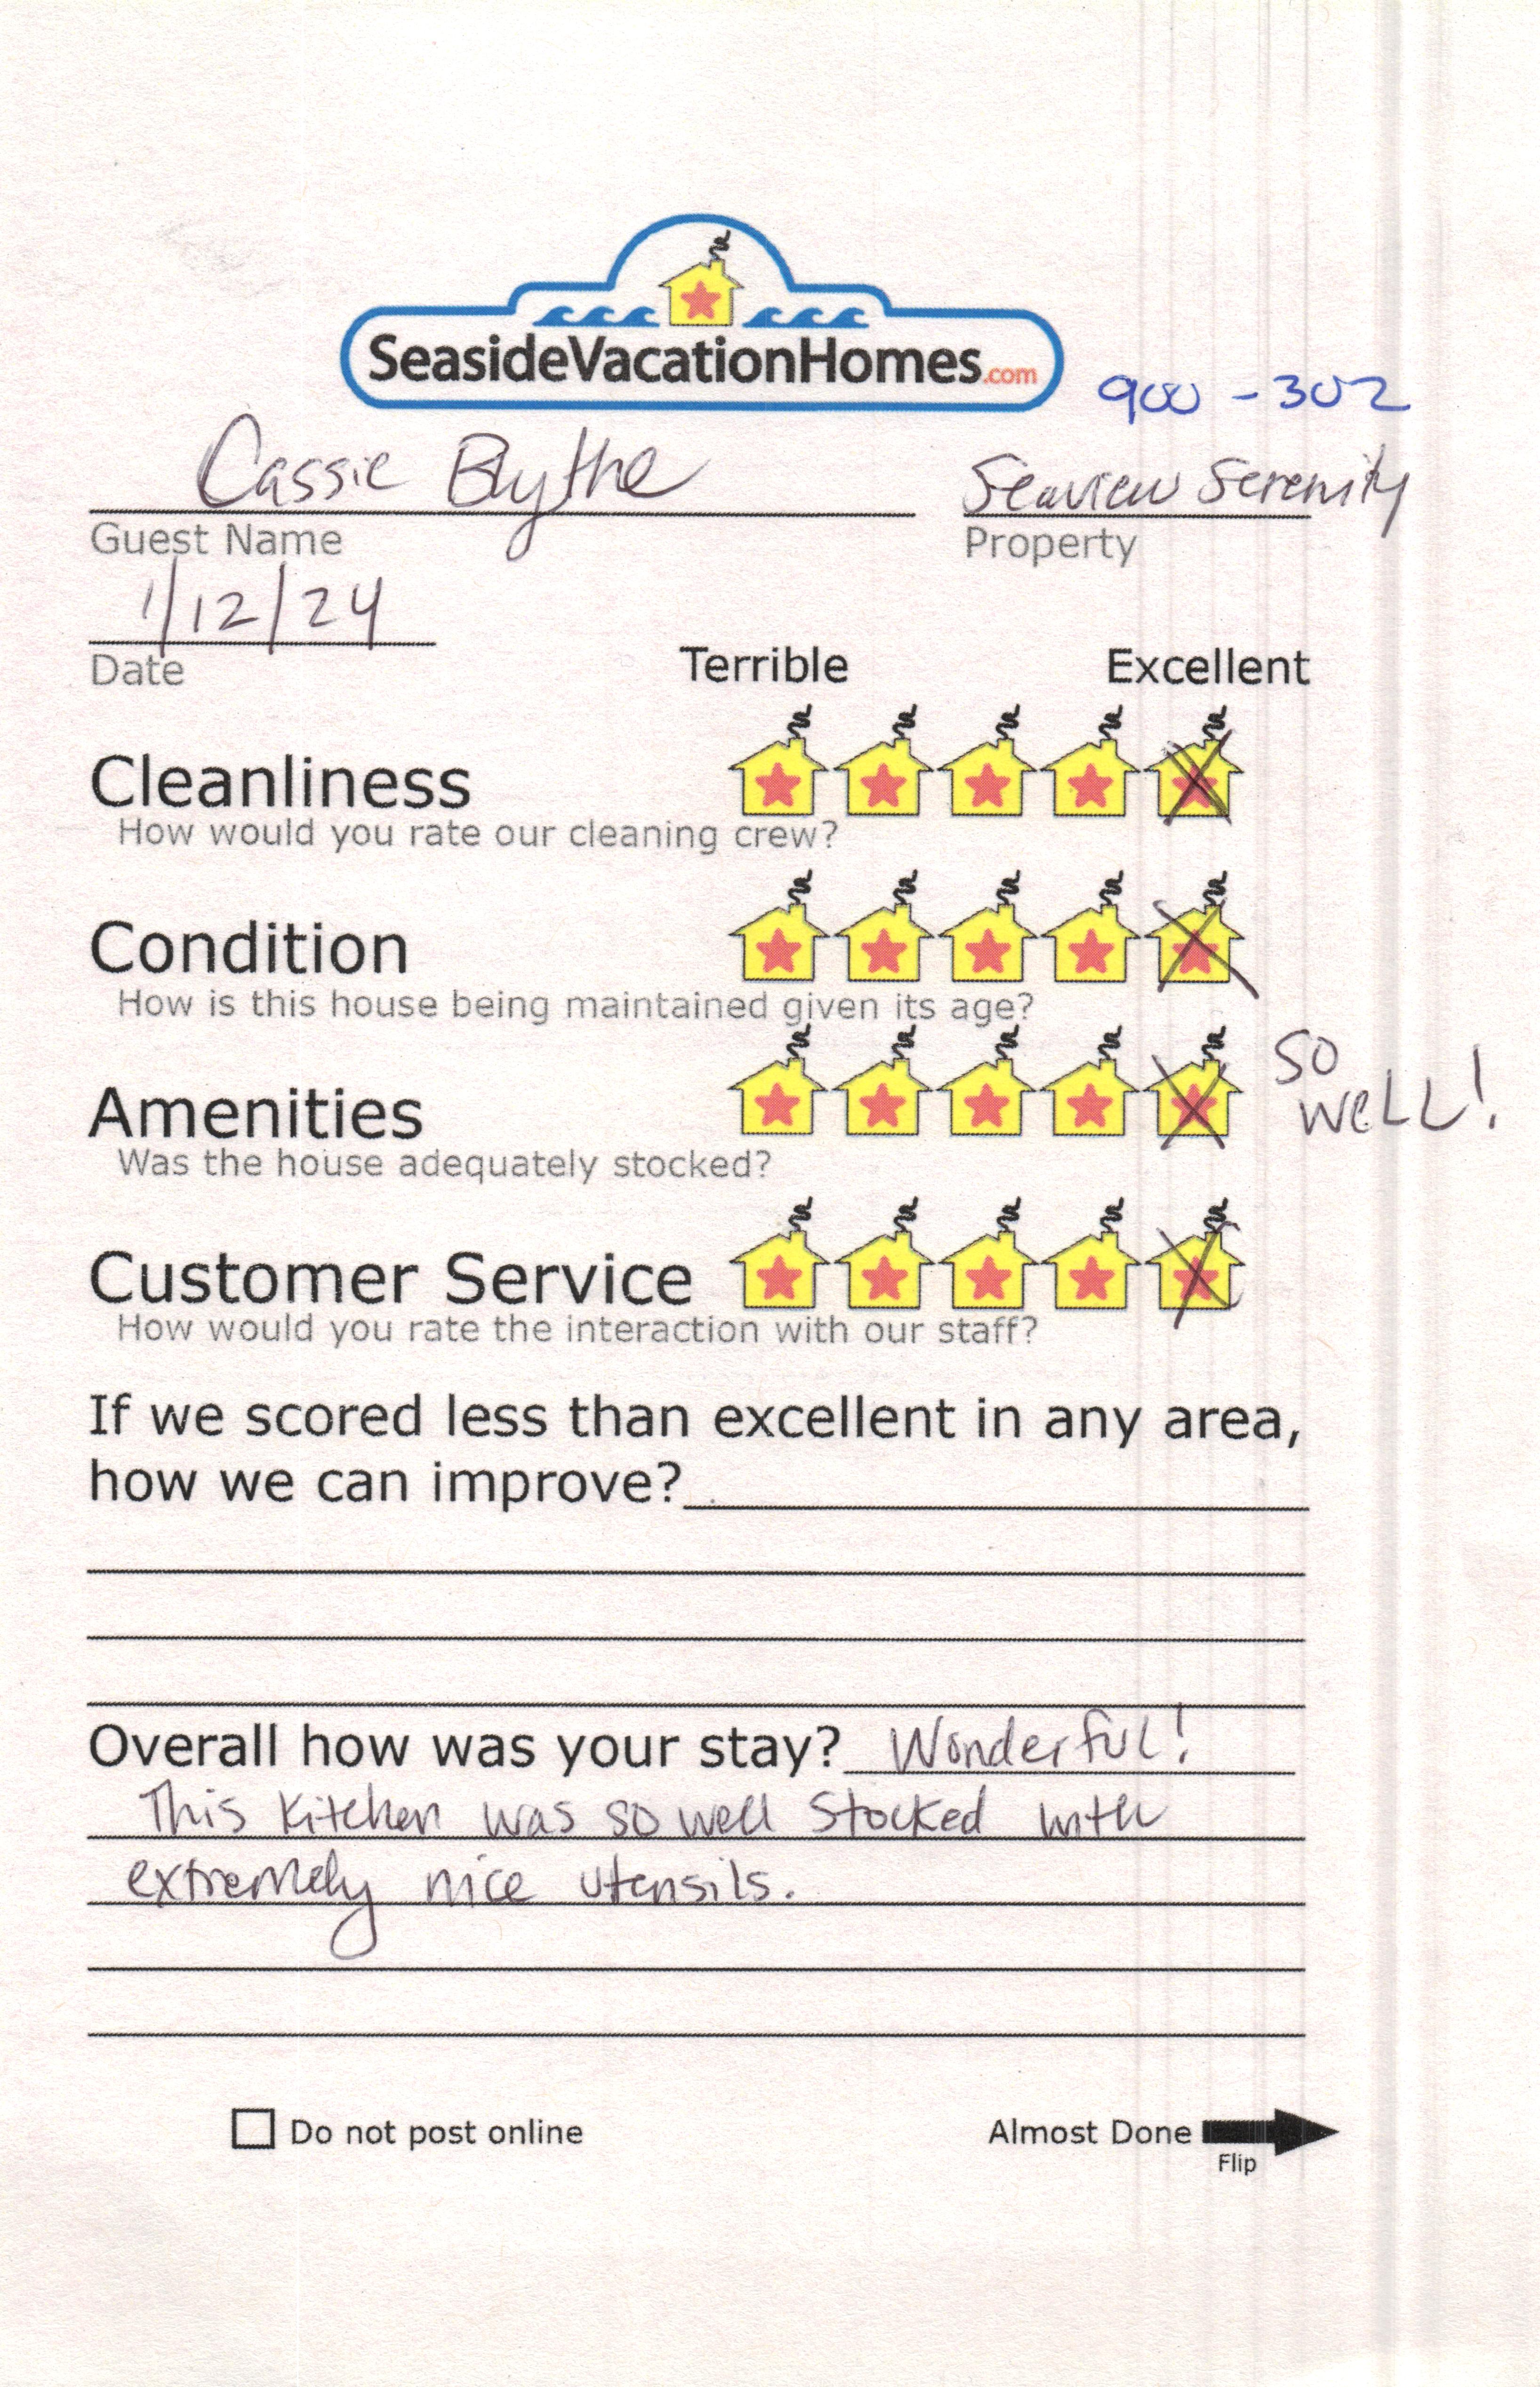 SeasideVacationHomes.com
900-302
Cassie Blythe
Seaview Serenity
Guest Name
Property
1/12/24
Date
Terrible
Excellent
Cleanliness
How would you rate our cleaning crew?
Condition
How is this house being maintained given its age?
Amenities
so
well!
Was the house adequately stocked?
Customer Service
How would you rate the interaction with our staff?
If we scored less than excellent in any area,
how we can improve?
Overall how was your stay? Wonderful!
This kitchen was so well stocked with
extremely nice utensils.
Do not post online
Almost Done
Flip